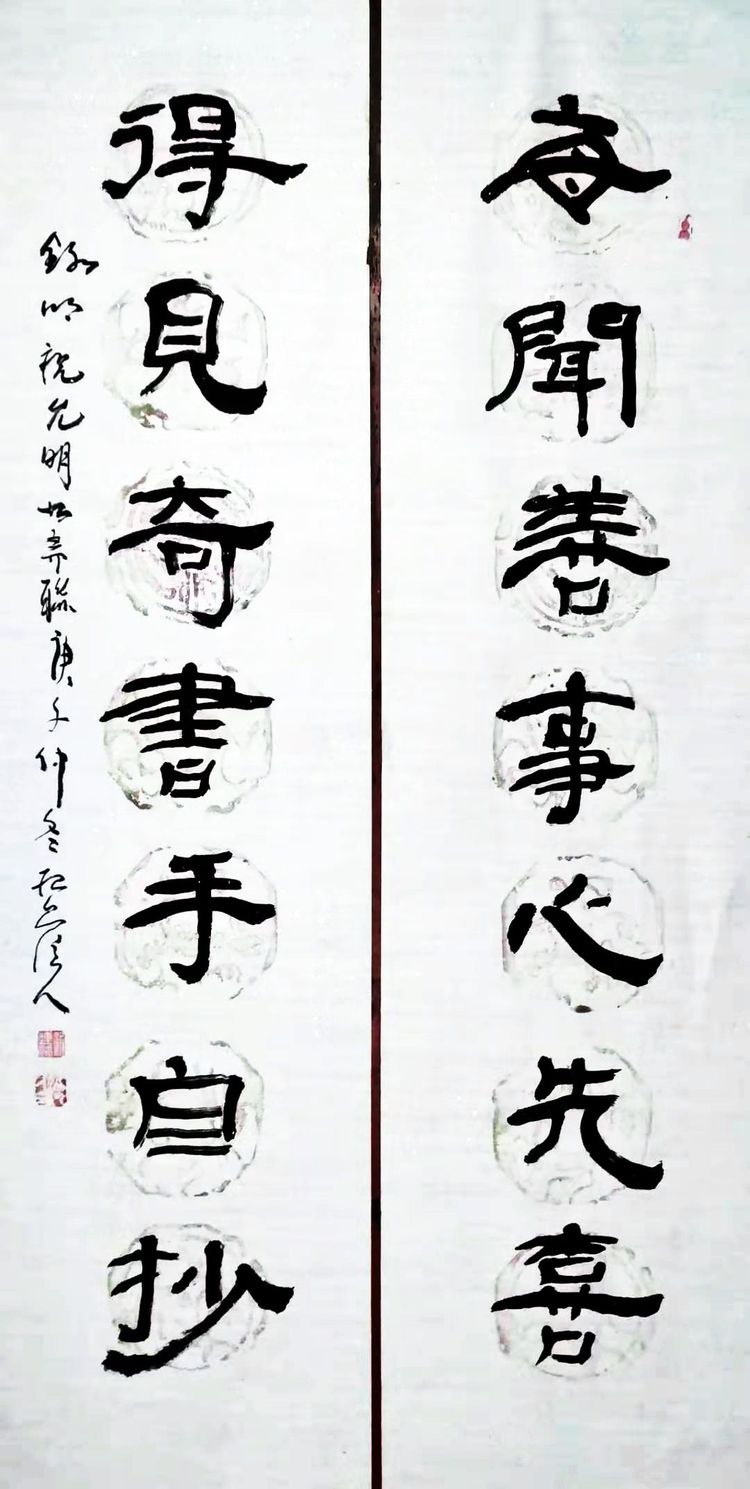 每聞善事心先喜
得見奇書手自抄
錄明祝允明 聯庚子仲冬